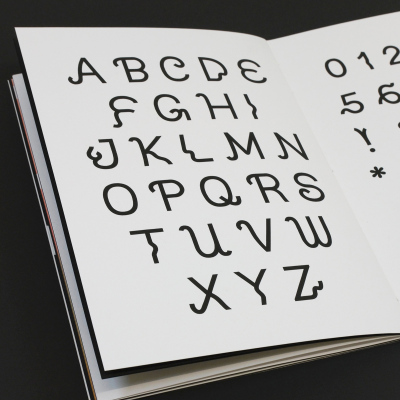 A B C D E
F G H I
J K L M N
O P Q R S
T U V W
X Y Z
0 1 2
5 6
! 
*